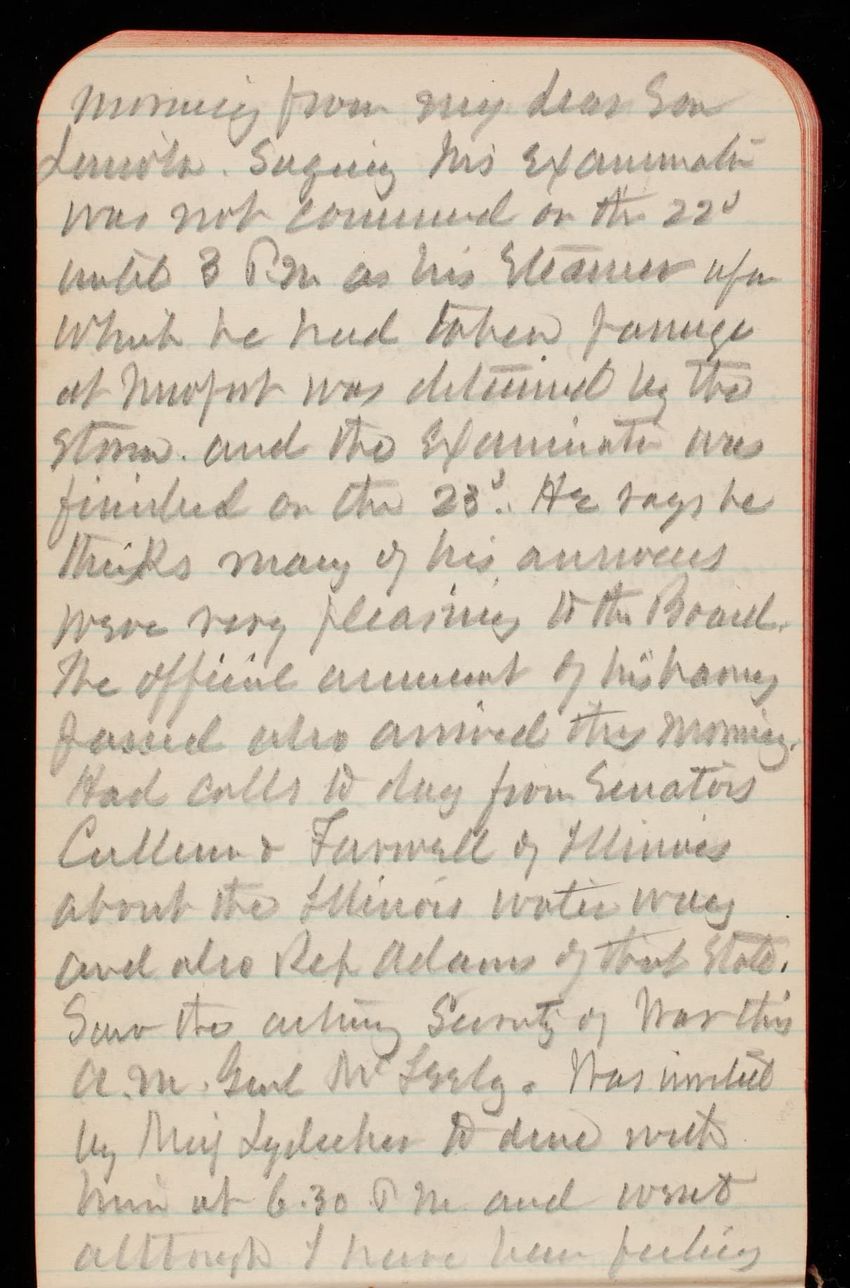 morning from my dear Son
Lincoln. Saying his Examination
was not commenced on the 22d
until 3 P.M. as his Steamer upon
which he had taken passage
at Newport was detained by the
storm. and the Examination was
finished on the 23d. He says he
thinks many of his answers
were very pleasing to the Board.
The official account of his having
passed also arrived this morning.
Had calls to day from Senators
Cullum & Farwell of Illinois
about the Illinois water way
and also Rep Adams of that State.
Saw the acting Secrety of War this
A.M. Genl McFeely. Was invited
by Maj Lydecker to dine with
him at 6.30 P.M. and went
although I have been feeling